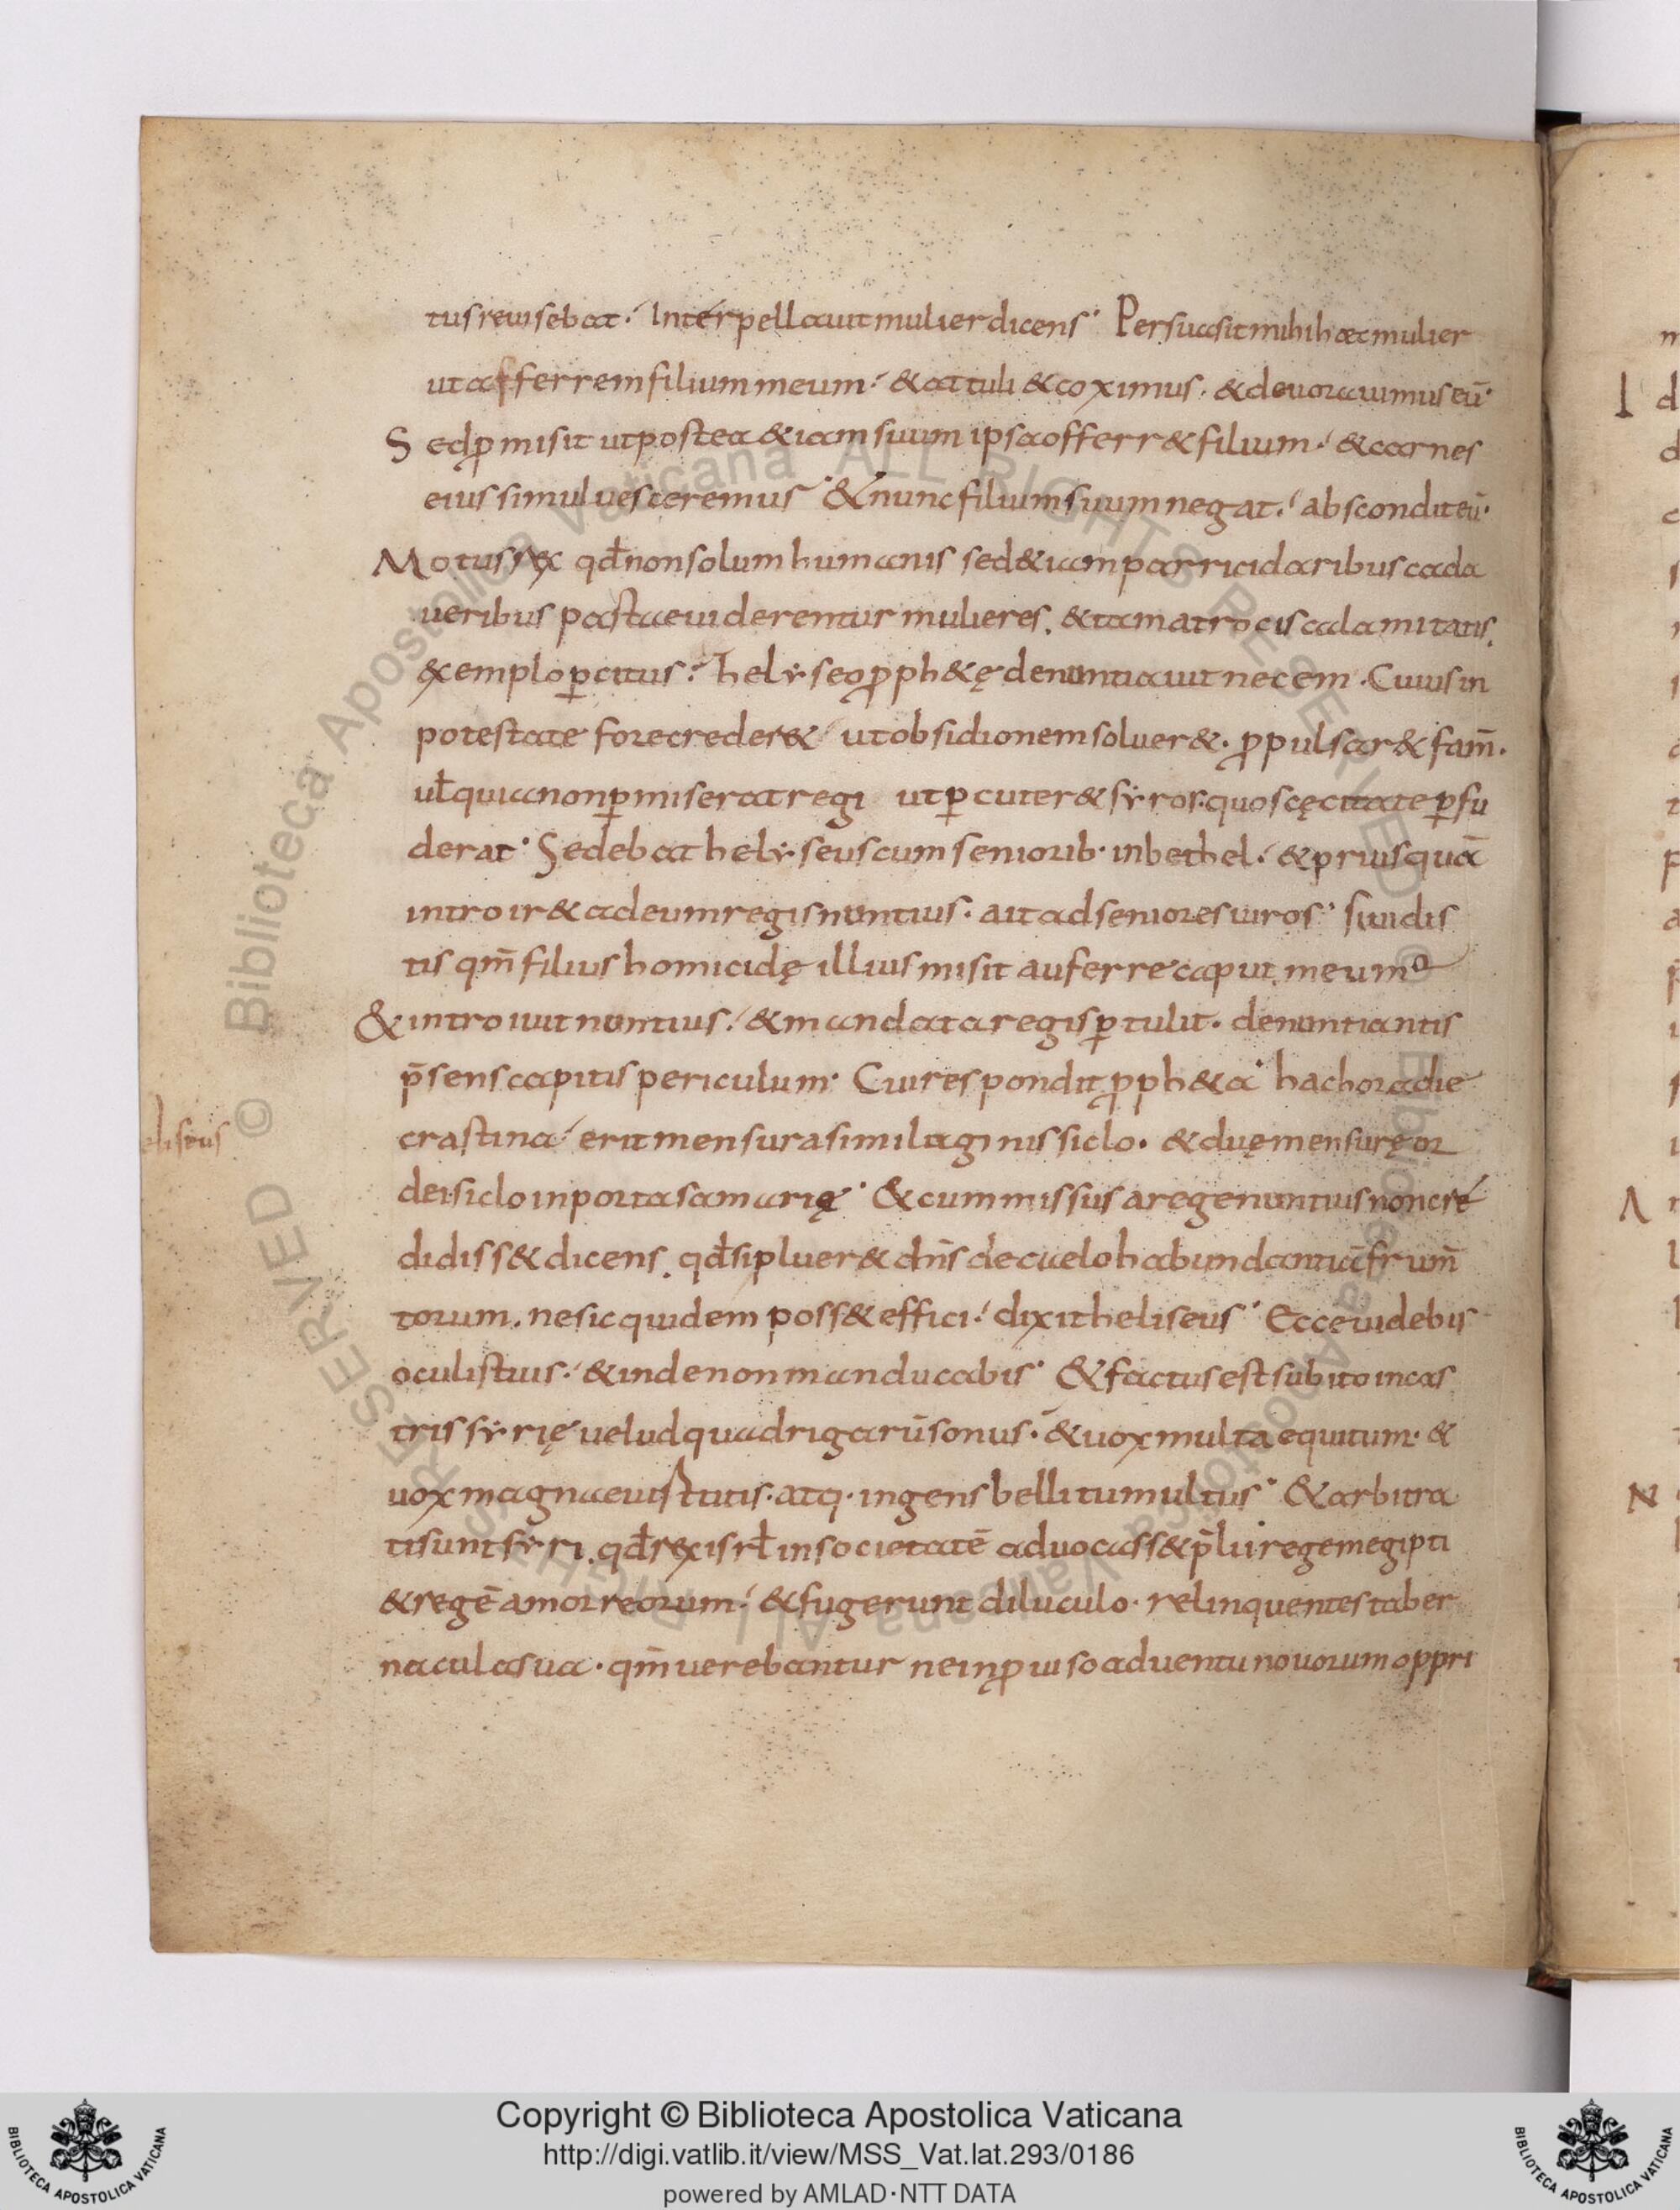 tus reuisebat. Interpellauit mulier dicens. Persuasit mihi haec mulier
ut afferrem filium meum. & attuli & coximus. & deuorauimus eū.
Sed p̱misit ut postea & iam suum ipsa offerr& filium. & carnes
eius simul uesceremus. & nunc filium suum negat. abscondit eū.
Motus rex qđ non solum humanis sed & iam parricidaribus cada
ueribus pastae uiderentur mulieres, & tam atrocis calamitatis,
exemplo p̱citus. helẏseo p̱ph&ę denuntiauit necem. Cuius in
potestate fore creder& ut obsidionem soluer&. p̱pulsar& fam̄.
uł quia non p̱miserat regi ut p̱cuter& sẏros. quos cęcitate p̱fu
derat. Sedebat helẏseus cum seniorib. in bethel. & priusquā
introir& ad eum regis nuntius. ait ad seniores uiros. Si uidis
tis qm̄ filius homicidę illius misit auferre caput meum
& introiuit nuntius. & mandata regis p̱tulit. denuntiantis
p̄sens capitis periculum. Cui respondit p̱ph&a. hac hora die
crastina erit mensura similaginis siclo. & duę mensurę or
dei siclo in porta samarię. & cum missus a rege nuntius non cre
didiss& dicens, qđ si pluer& dn̄s de caelo habundantiā frum̄
torum. ne sic quidem poss& effici. dixit heliseus. Ecce uidebis
oculis tuis. & inde non manducabis. & factus est subito in cas
tris sẏrię uelud quadrigarū sonus. & uox multa equitum. &
uox magnae uirtutis. atq. ingens belli tumultus. & arbitra
ti sunt sẏri. qđ rex isrł in societatē aduocass& p̄lii regem egipti
& regē amorreorum. & fugerunt diluculo. relinquentes taber
nacula sua. qm̄ uerebantur ne inp̱uiso aduentu nouorum oppri
eliseus
© Biblioteca Apostolica Vaticana ALL RIGHTS RESERVED
Copyright © Biblioteca Apostolica Vaticana
http://digi.vatlib.it/view/MSS_Vat.lat.293/0186
powered by AMLAD·NTT DATA
BIBLIOTECA APOSTOLICA VATICANA
BIBLIOTECA APOSTOLICA VATICANA